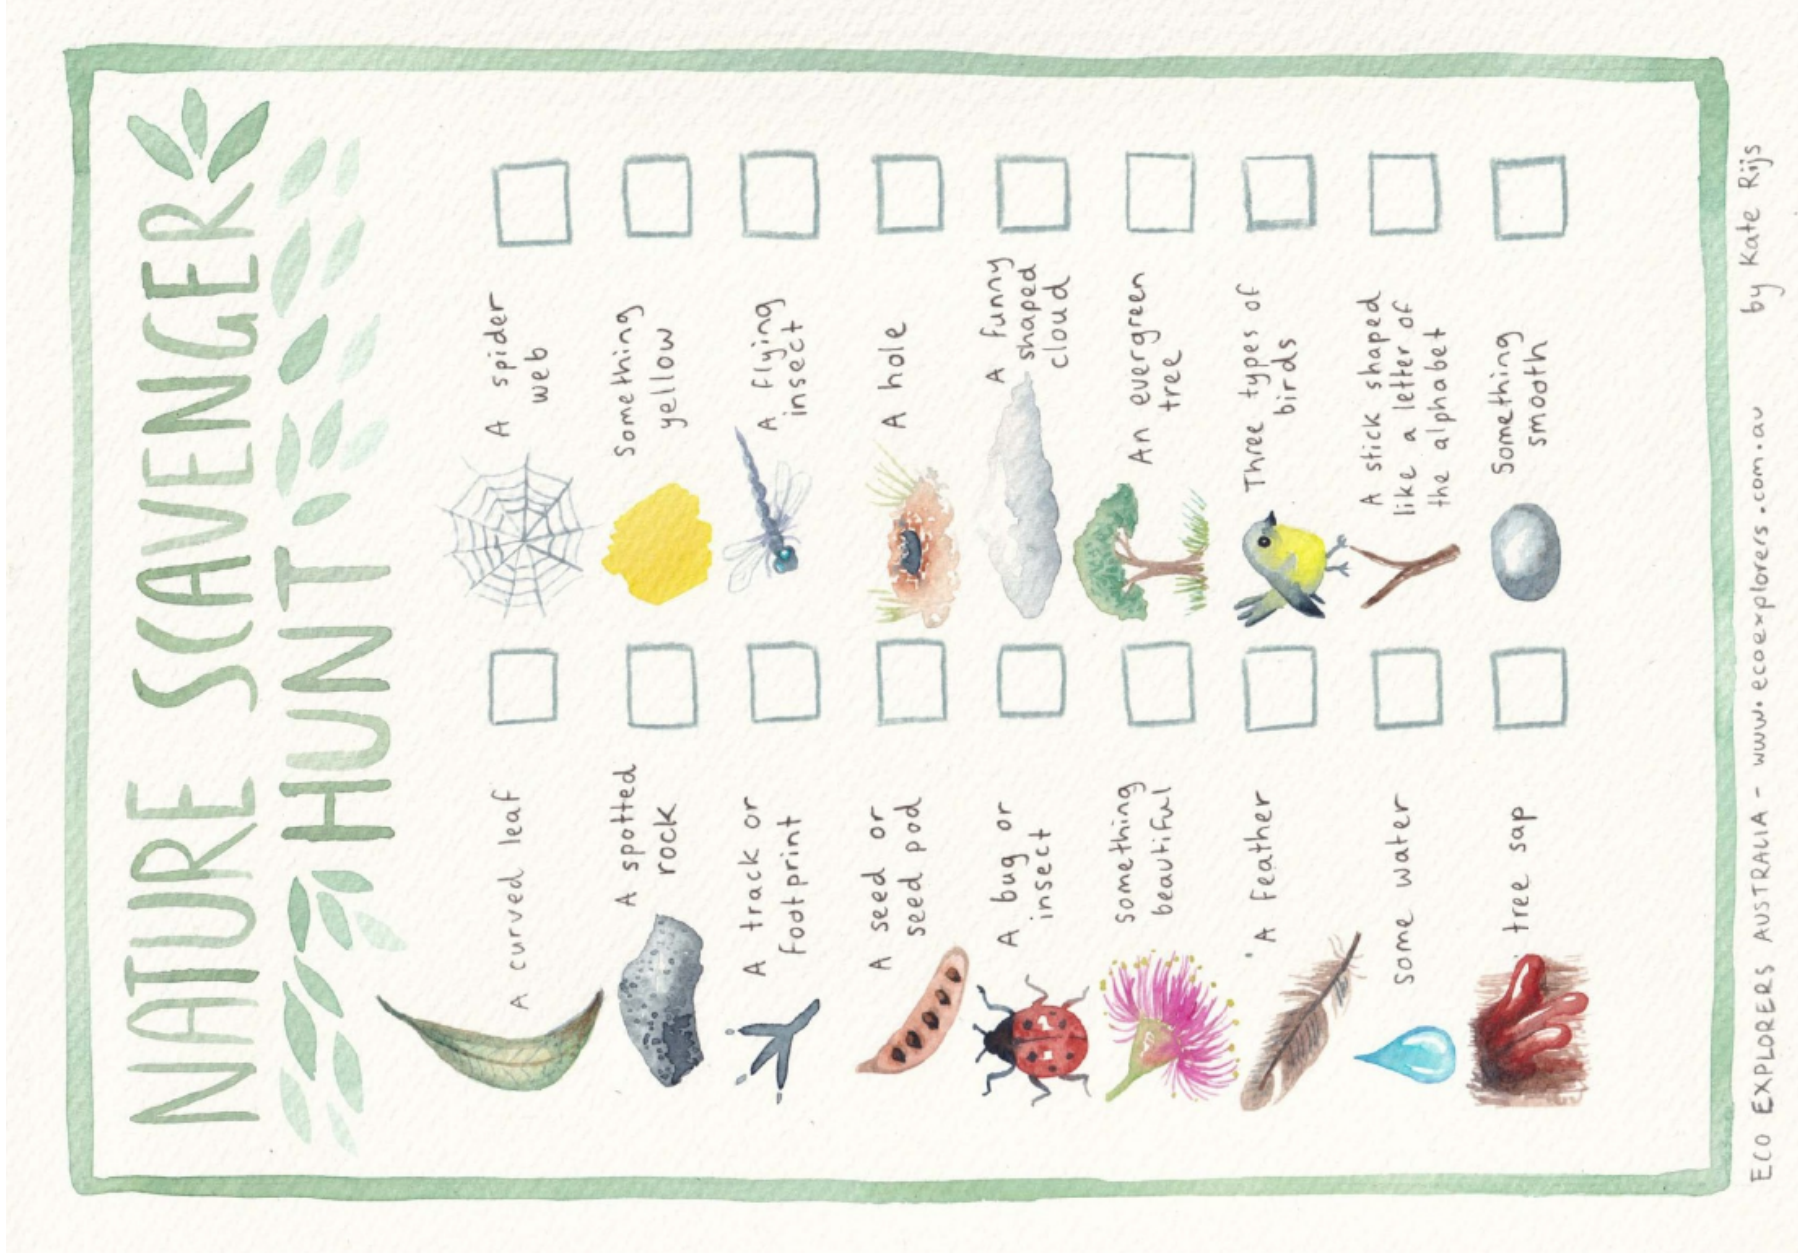 NATURE SCAVENGER
HUNT
A curved leaf
A spotted
rock
A track or
footprint
A seed or
seed pod
A bug or
insect
something
beautiful
A feather
some water
tree sap
A spider
web
Something
yellow
A flying
insect
A hole
A funny
shaped
cloud
An evergreen
tree
Three types of
birds
A stick shaped
like a letter of
the alphabet
Something
smooth
ECO EXPLORERS AUSTRALIA - www.ecoexplorers.com.au by Kate Rijs